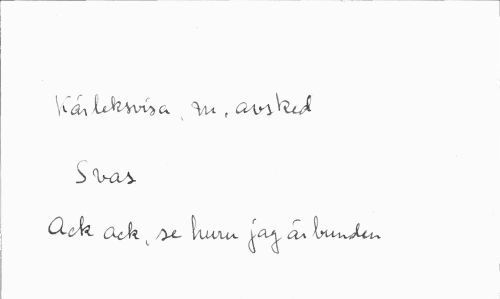 Kärleksvisa, m. avsked
Svas
Ack ack, se huru jag är bunden